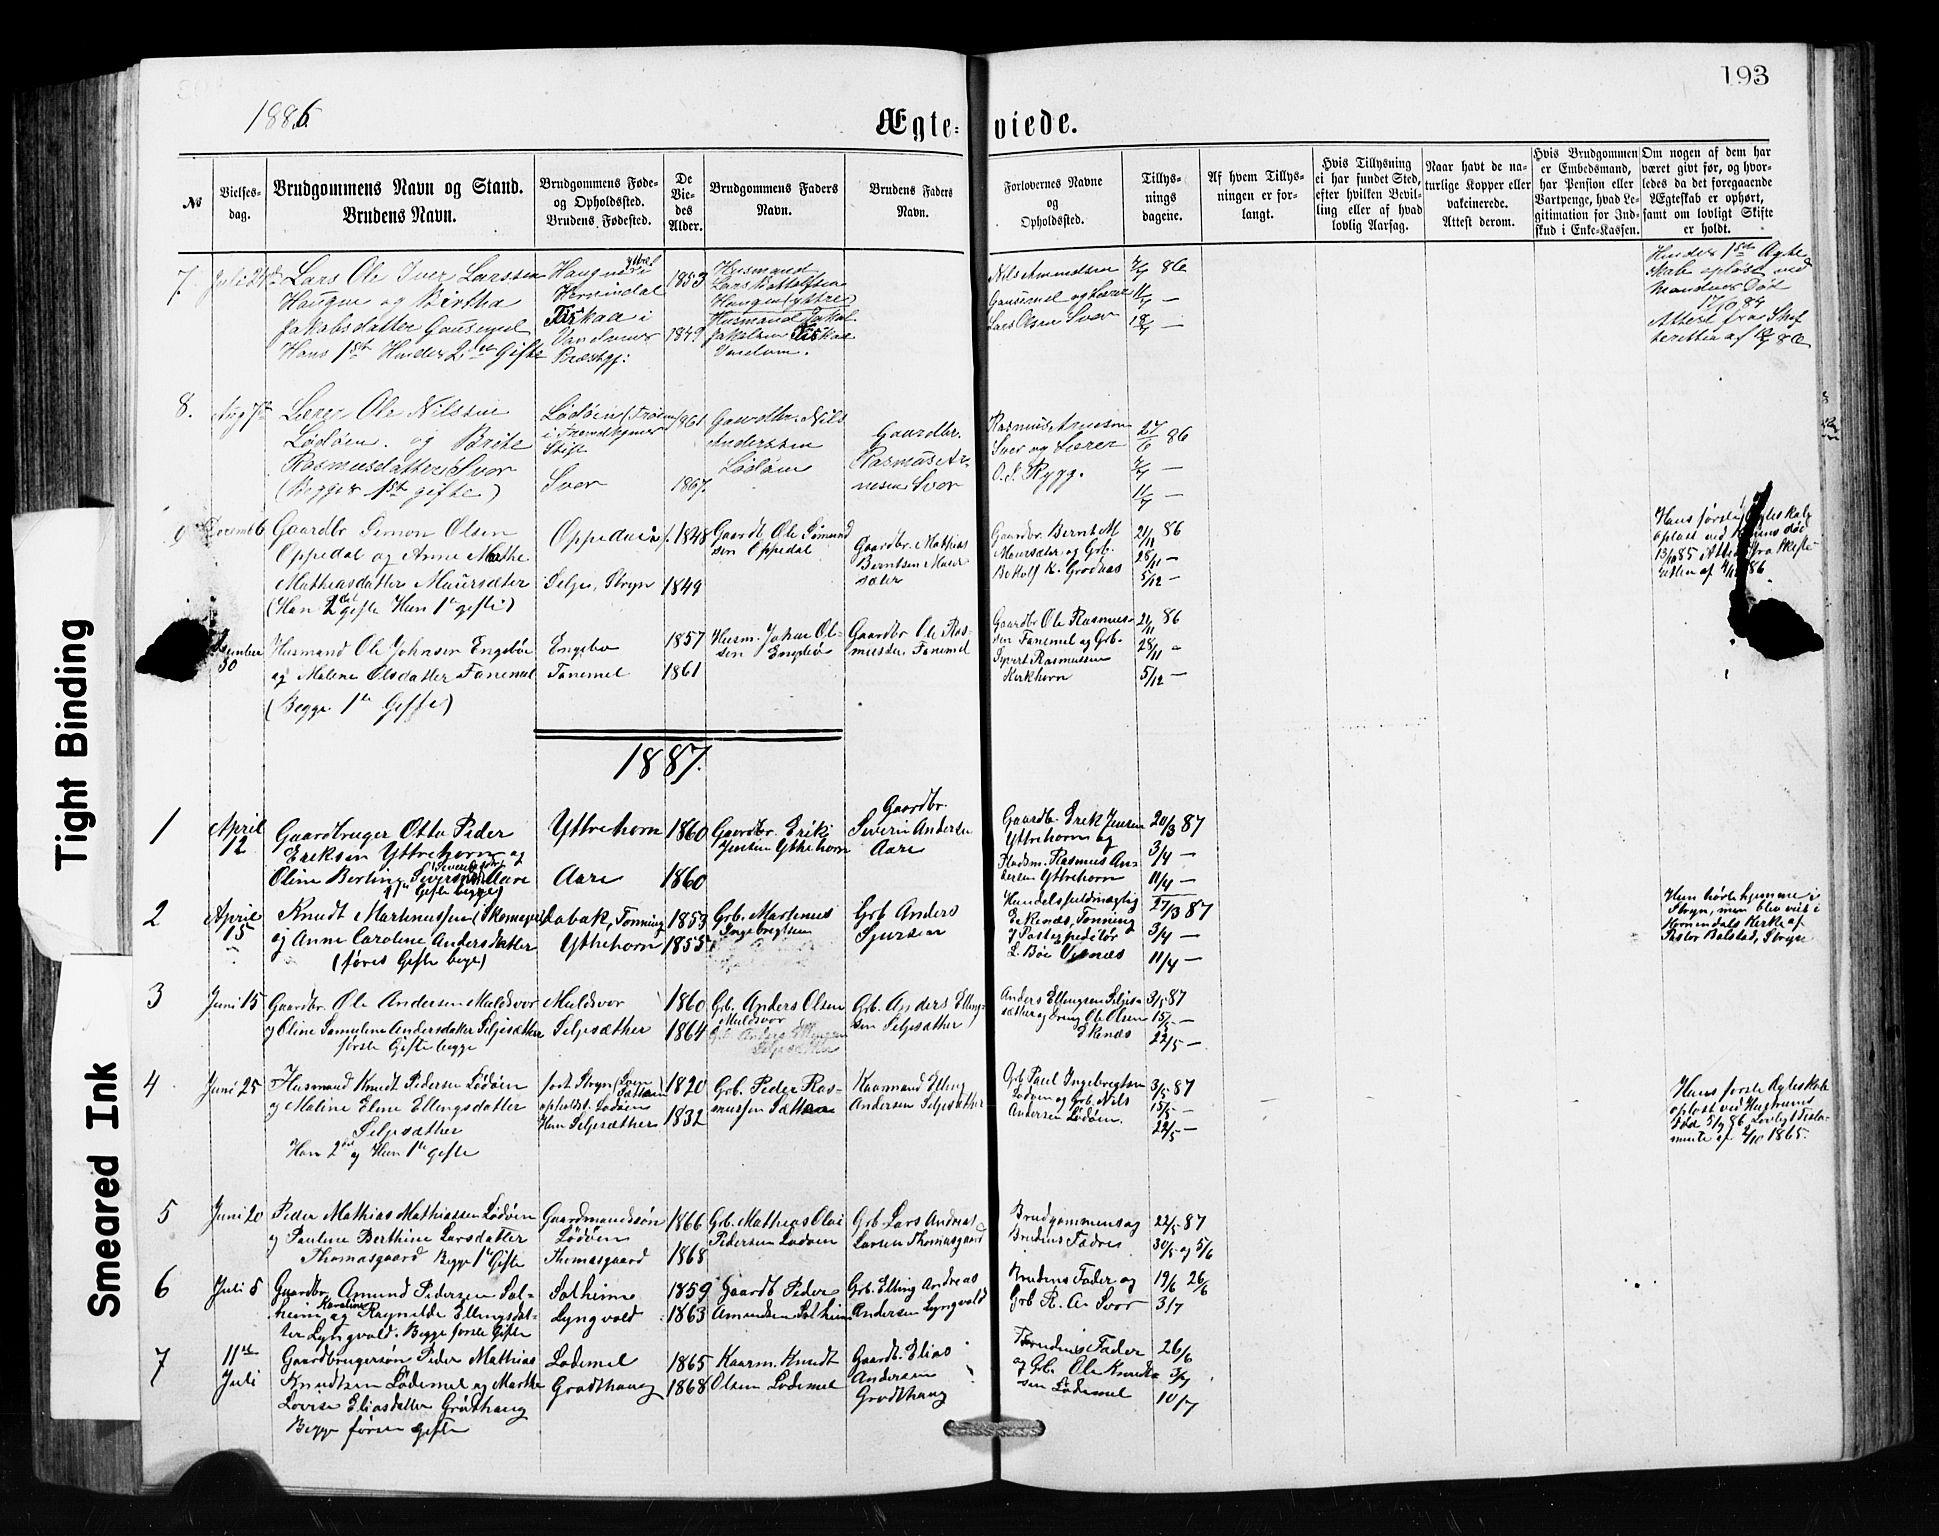 193
1886.
Ægte-viede.
No
Vielses-
dag.
Brudgommens Navn og Stand.
Brudens Navn.
Brudgommens Føde-
og Opholdssted.
Brudens Fødested.
De
Vie-
des
Alder.
Brudgommens Faders
Navn.
Brudens Faders
Navn.
Forlovernes Navne
og
Opholdssted.
Tillys-
nings
dagene.
Af hvem Tillys-
ningen er for-
langt.
Hvis Tillysning
ei har fundet Sted,
efter hvilken Bevil-
ling eller af hvad
lovlig Aarsag.
Naar havt de na-
turlige Kopper eller
vakcinerede.
Attest derom.
Hvis Brudgommen
er Embedsmand,
har Pension eller
Vartpenge, hvad Le-
gitimation for Ind-
skud i Enke-Kassen.
Om nogen af dem har
været givt før, og hvor-
ledes da det foregaaende
Ægteskab er ophørt,
samt om lovligt Skifte
er holdt.
7.
Lars Ole Iver Larssen
Haugen og Birtha
Jakobsdatter Gausemel
Hans 1st Hendes 2den Gifte
Hornindal
1853
1849
Husmand
Haugen (ytre)
Husmand Jakob
Nils Amundsen
Gausemel og Lærer
Lars Olsen Svor
4/7 86
11/7 —
18/7 —
Hendes 1ste Ægte
skab opløst ved
Mandens Død
8.
Aug 7de
Lærer Ole Nilssen
Lødøen og Brithe
Rasmusdatter Svor
(Begges 1st gifte)
Svor
1861
1867.
Gaardbr. Nils
Anderssen
Lødøen
Gaardbr.
Rasmus Ar-
nesen Svor
Rasmus Arnesen
Svor og Lærer
O. S. Rygg.
27/6 86
4/7 —
11/7 —
9
Gaardbr Simon Olsen
Oppedal og Anne Marthe
Mathiasdatter Maursæter
(Han 2det gifte Hun 1ste gifte)
Selje, Stryn
1848
1849
Gaardb. Ole Simund
sen Oppedal
Gaardbr. Mathias
Berntsen Maur
sæter
Gaardbr Bernt M
Maursæter og Grb.
Botholf K. Grodaas
21/11 86
28/11 —
5/12 —
Hans første Ægteskab
opløst ved Konens død
December
30
Husmand Ole Johnsen Engebøe
og Malene Olsdatter Fanemel
(Begge 1ste Gifte)
Engebø
Fanemel
1857
1861
Husm. Johan Ol-
sen Engebø
Gaardbr Ole Ras-
mussen Fanemel
Gaardbr Ole Rasmus-
sen Fanemel og Grb.
Syvert Rasmussen
Kirkhorn
21/11 86
28/11 —
5/12 —
1887.
1
April
12
Gaardbruger Otto Peder
Eriksen Yttrehorn og
Oline Bertine Aare
1ste Gifte begge)
Yttrehorn
Aare
1860
1860
Gaardbr Erik
Jensen Yttrehorn
Gaardbr.
Severin Andersen
Aare
Gaardb. Erik Jensen
Yttrehorn og
Rasmus An-
dersen Yttrehorn
20/3 87
3/4 —
11/4 —
2
April
15
Knudt Martinussen (Skomager)
og Anne Caroline Andersdatter
(føres Gifte begge)
Yttrehorn
1853
1855
Grb. Martinus
Ingebregtsen
Grb Anders
Sjursen
Handelsfuldmægtig
Eikenæs, Tonning
og Postexpeditør
L. Bøe Visnæs
27/3 87
3/4 —
11/4 —
Hun hørte hjemme i
Stryn, men blev viet i
Hornindals Kirke af
Pastor Balstad, Stryn
3
Juni 15
Gaardbr. Ole Andersen Muldsvor
og Oline Samuline Andersdatter Seljesæther
første Gifte begge
Muldsvor
Seljesæther
1860
1864
Grb. Anders Olsen
Muldsvor
Grb. Anders Elling-
sen Seljesæther
Anders Ellingsen Seljes-
æther og Dreng Ole Olsen
Ekenæs
3/5 87
15/5 —
22/5 —
4
Juni 25
Husmand Knudt Pedersen Lødøen
og Maline Eline Ellingsdatter
Seljesæther
Han 2det og Hun 1ste gifte
opholdst. Lødøen
Hun Seljesæther
1820
1832
Grb. Peder Ras-
mussen Sættem
Kaarmand Elling
Andersen Seljesæther
Grb Paul Ingebregtsen
Lødøen og Grb. Nils
Andersen Lødøen.
3/5 87
15/5 —
22/5 —
Hans første Ægteskab
opløst ved Hustruens
Død
1865.
5
Juni 20
Peder Mathias Mathiassen Lødøen
og Pauline Berthine Larsdatter
Thomasgaard Begge 1ste Gifte
Gaardmandssøn
Lødøen
Thomasgaard
1866
1868
Grb. Mathias Olai
Pedersen Lødøen
Grb Lars Andreas
Larsen Thomasgaard
Brudgommens og
Brudens Fædre
22/5 87
30/5 og 5/6
6
Juli 5
Gaardbr Amund Pedersen Sol-
heim og Karoline Ragnilde Ellingsdat-
ter Lyngvold. Begge første Gifte
Solheim
Lyngvold
1859
1863
Gaardb Peder
Amundsen Solheim
Grb. Elling Andreas
Andersen Lyngvold
Brudens Fader og
Grb R. A. Svor
19/6 26/6
3/7
7
11te
Juli
Gaardbrugersøn Peder Mathias
Knudtsen Lødemel og Marthe
Lovise Eliasdatter Grodthaug
Begge første gifte
Lødemel
Grodthaug
1865
1868
Kaarm. Knudt
Olsen Lødemel
Gaardb. Elias
Andersen
Grodthaug
Brudens Fader
og Grb. Ole Knudt-
sen Lødemel
26/6
3/7
10/7
Tight Binding
Smeared Ink